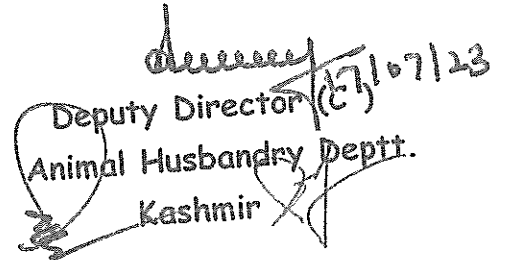 17/07/23
Deputy Director (C)
Animal Husbandry Deptt.
Kashmir